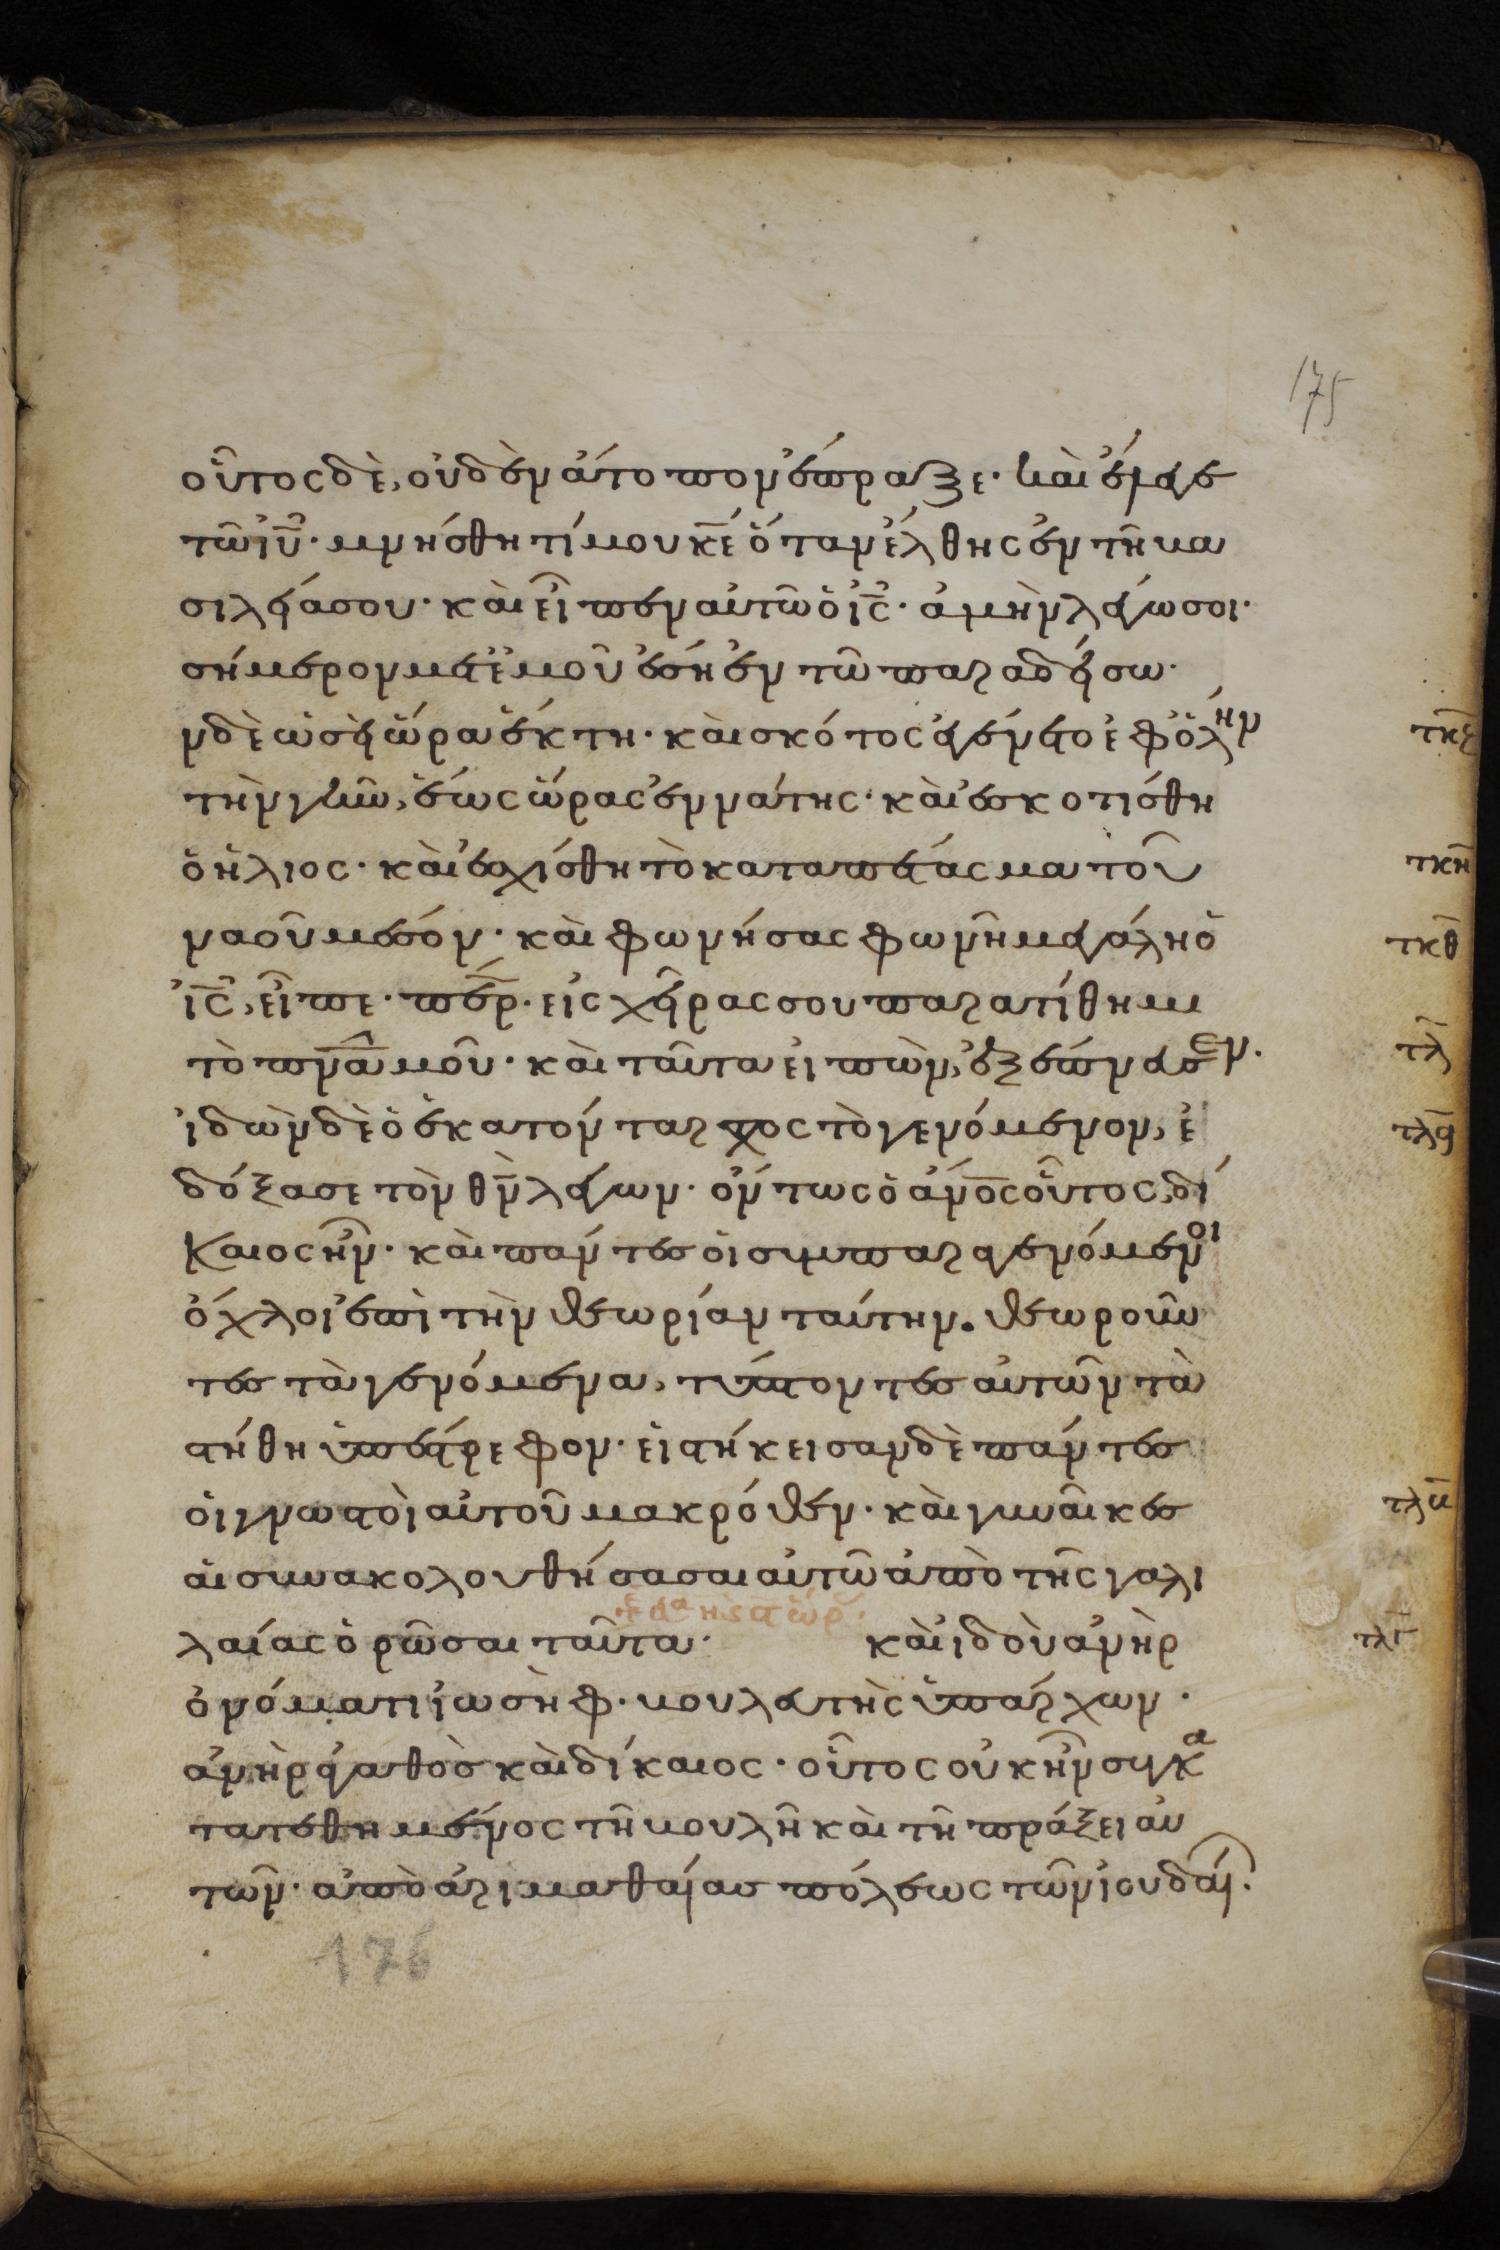 175
οὗτος δὲ, οὐδὲν ἄτοπον ἔπραξε· καὶ ἔλεγε
τῶ ἰῦ· μνήσθητί μου κε̅ ὅταν ἔλθης ἐν τῆ βα
σιλεία σου· καὶ εἶπεν αὐτῶ ὁ ἰς̅· ἀμὴν λέγω σοι·
σήμερον μετ' ἐμοῦ ἔση ἐν τῶ παραδείσω·
ν δὲ ὡσεὶ ὥρα ἕκτη· καὶ σκότος ἐγένετο ἐφ' ὅλην
τὴν γῆν, ἕως ὥρας ἐννάτης· καὶ ἐσκοτίσθη
ὁ ἥλιος· καὶ ἐσχίσθη τὸ καταπέτασμα τοῦ
ναοῦ μέσον· καὶ φωνήσας φωνῆ μεγάλη ὁ
ἰς̅, εἶπε· περ̅· εἰς χεῖρας σου παρατίθημι
τὸ πνα̅ μοῦ· καὶ ταῦτα εἰπὼν, ἐξέπνευσεν.
ἰδὼν δὲ ὁ ἑκατόνταρχος τὸ γενόμενον, ἐ
δόξασε τὸν θν̅ λέγων· ὄντως ὁ ἄνος̅ οὗτος, δί
καιος ἦν· καὶ πάντες οἱ συμπαραγενόμενοι
ὄχλοι ἐπὶ τὴν θεωρίαν ταύτην. θεωροῦν
τες τὰ γενόμενα, τύπτοντες αὐτῶν τὰ
στήθη ὑπέστρεφον· εἱστήκεισαν δὲ πάντες
οἱ γνωστοὶ αὐτοῦ μακρόθεν· καὶ γυναῖκες
αἱ συνακολουθήσασαι αὐτῶ ἀπὸ τῆς γαλι
λαίας ὁρῶσαι ταῦτα· καὶ ἰδοὺ ἀνὴρ
ὀνόματι ἰωσὴφ· βουλευτὴς ὑπάρχων·
ἀνὴρ ἀγαθὸς καὶ δίκαιος· οὗτος οὐκ ἦν συγκα
τατεθημένος τῆ βουλῆ καὶ τῆ πράξει αὐ
τῶν· ἀπὸ ἀριμαθαίας πόλεως τῶν ἰουδαί·
τκζ
τκη
τκθ
τλ
τλα
τλβ
τλγ
176